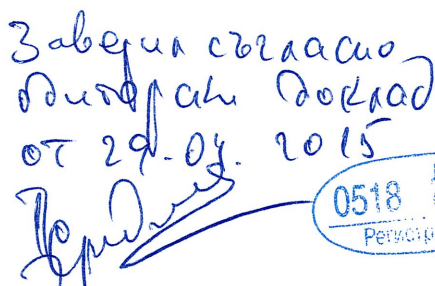 Заверил съгласно
одиторски доклад
от 29.04. 2015
0518
Регистр